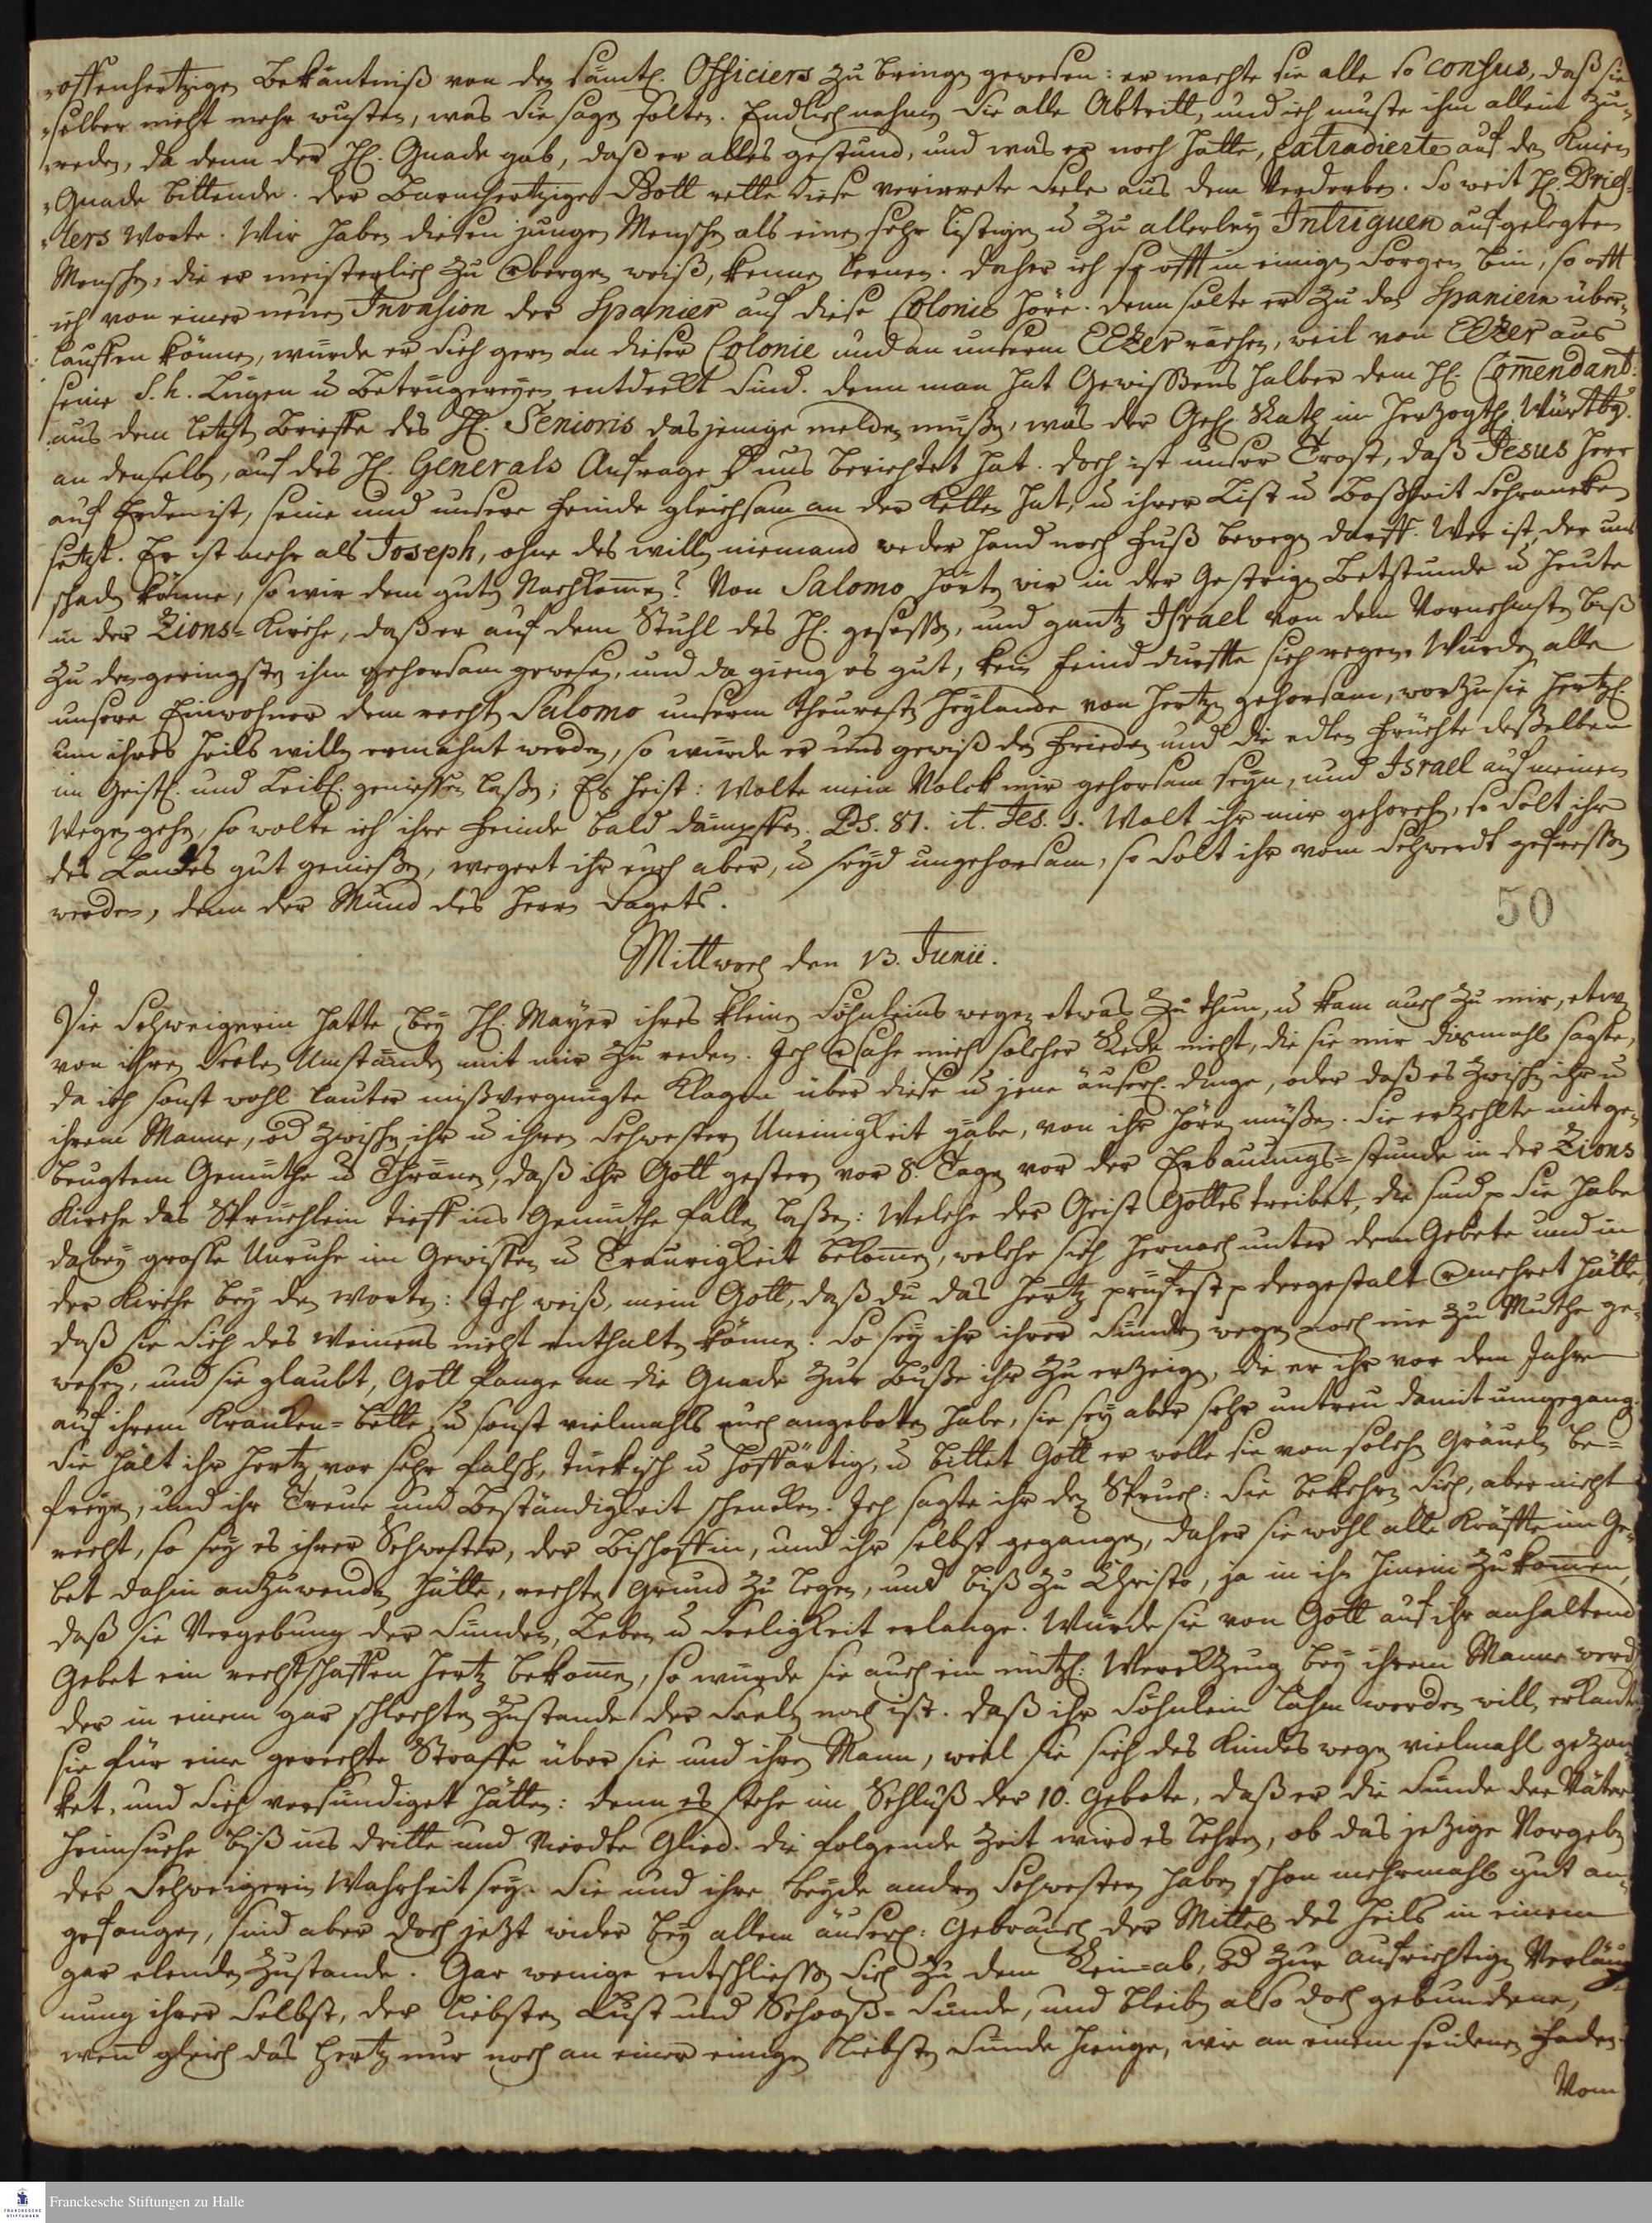 „offenhertzigen Bekäntniß von den sämtl. Officiers zu bringen gewesen: er machte sie alle so confus, daß sie
„selber nicht mehr wusten, was sie sagen solten. Endlich nahmen sie alle Abtritt, und ich muste ihm allein zu-
„reden, da denn der HE. Gnade gab, daß er alles gestund, und was er noch hatte, extradierte auf den Knien
„Gnade bittende. Der barmhertzige Gott rette diese verirrete Seele aus dem Verderben. So weit HE. Dries-
„lers Worte. Wir haben diesen jungen Menschen als einen sehr listigen u. zu allerley Intriguen aufgelegten
Menschen, die er meisterlich zu verbergen weiß, kennen lernen. Daher ich so offt in einigen Sorgen bin, so offt
ich von einer neuen Invasion der Spanier auf diese Colonie höre. Denn solte er zu den Spaniern über-
lauffen können, würde er sich gern an dieser Colonie und an unserm EbEzer rächen, weil von EbEzer aus
seine S. h. Lügen u. Betrügereyen entdeckt sind. Denn man hat Gewissens halber dem HE. Commendant.
aus dem letzten Brieffe des HE. Senioris dasjenige melden müssen, was der Geh. Rath im Herzogth. Würtbg.
an denselben, auf des HE. Generals Anfrage uns berichtet hat. Doch ist unser Trost, daß Jesus Herr
auf Erden ist, seine und unsere Feinde gleichsam an der Ketten hat, u. ihrer List u. Boßheit Schrancken
setzt. Er ist mehr als Joseph, ohne des willen niemand weder Hand noch Fuß bewegen darff. Wer ist, der uns
schaden könne, so wir dem guten Nachkommen? Von Salomo hörten wir in der gestrigen Betstunde u. heute
in der Zions-Kirche, daß er auf dem Stuhl des HE. gesessen, und gantz Israel von dem Vornehmsten biß
zu den geringsten ihm gehorsam gewesen, und da gieng es gut, kein Feind durffte sich regen. Würden alle
unsere Einwohner dem rechten Salomo unserm theuresten Heylande von Hertzen gehorsam, wozu sie hertzl.
um ihres Heils willen ermahnt werden, so würde er uns gewiß den Frieden und die edlen Früchte desselben
im Geistl. und Leibl. geniessen lassen; Es heist: Wolte mein Volck mir gehorsam seyn, und Israel auf meinen
Wegen gehen, so wolte ich ihre Feinde bald dämpffen. Ps. 81. it. Jes. 1. Wolt ihr mir gehorchen, so solt ihr
des Landes gut geniessen, wegert ihr euch aber, u. seyd ungehorsam, so solt ihr vom Schwerdt gefressen
werden, denn der Mund des Herrn sagets.
50
Mittwoch den 13. Junii.
Die Schweigerin hatte bey HE. Mayer ihres kleinen Söhnleins wegen etwas zu thun, u. kam auch zu mir, etwas
von ihren Seelen Umständen mit mir zu reden. Ich versahe mich solcher Rede nicht, die sie mir dismahls sagte,
da ich sonst wohl lauter mißvergnügte Klagen über diese u. jene äuserl. Dinge, oder daß es zwischen ihr u.
ihrem Manne, od. zwischen ihr u. ihren Schwestern Uneinigkeit gäbe, von ihr hören müssen. Sie erzehlte mit ge-
beugtem Gemüthe u. Thränen, daß ihr Gott gestern vor 8. Tagen vor der Erbauungs-Stunde in der Zions
Kirche das Sprüchlein tieff ins Gemüthe fallen lassen: Welche der Geist Gottes treibet, die sind p Sie habe
dabey grosse Unruhe im Gewissen u. Traurigkeit bekommen, welche sich hernach unter dem Gebete und in
der Kirche bey den Worten: Ich weiß, mein Gott, daß du das Hertz prüfest p dergestalt vermehret hätte,
daß sie sich des Weinens nicht enthalten könne. So sey ihr ihrer Sünden wegen noch nie zu Muthe ge-
wesen, und sie glaubt, Gott fange an die Gnade zur Busse ihr zu erzeigen, die er ihr vor dem Jahre
auf ihrem Krancken-bette u. sonst vielmahls auch angeboten habe, sie sey aber sehr untreu damit umgegang.
Sie hält ihr Hertz vor sehr falsch, tückisch u. hoffärtig, u. bittet Gott er wolle sie von solchen Gräueln be-
freyen, und ihr Treue und Beständigkeit schencken. Ich sagte ihr den Spruch: Sie bekehren sich, aber nicht
recht, so sey es ihrer Schwester, der Bischoffin, und ihr selbst gegangen, daher sie wohl alle Kräffte im Ge-
bet dahin anzuwenden hätte, rechten Grund zu legen, und biß zu Christo, ja in ihn hinein zu kommen,
daß sie Vergebung der Sünden, Leben u. Seeligkeit erlange. Würde sie von Gott auf ihr anhaltend
Gebet ein rechtschaffen Hertz bekommen, so würde sie auch ein nützl: Werckzeug bey ihrem Manne werd.
der in einem gar schlechten Zustande der Seelen noch ist. Daß ihr Söhnlein lahm werden will, erkante
sie für eine gerechte Straffe über sie und ihren Mann, weil sie sich des Kindes wegen vielmahl gezan-
ket, und sich versündiget hätten: denn es stehe im Schluß der 10. Gebote, daß er die Sünde der Väter
heimsuche biß ins dritte und vierdte Glied. Die folgende Zeit wird es lehren, ob das jetzige Vorgeben
der Schweigerin Wahrheit sey. Sie und ihre beyde andern Schwestern haben schon mehrmahls gut an-
gefangen, sind aber doch jetzt wider bey allem äuserl: Gebrauch der Mittel des Heils in einem
gar elenden Zustande. Gar wenige entschliessen sich zu dem Rein-ab, od. zur aufrichtigen Verläug-
nung ihrer Selbst, der liebsten Lust und Schooß-Sünde, und bleiben also doch gebundene,
wenn gleich das Hertz nur noch an einer einigen liebsten Sünde hienge, wie an einem seidenen Faden.
Vom
Franckesche Stiftungen zu Halle
FRANCKESCHE STIFTUNGEN